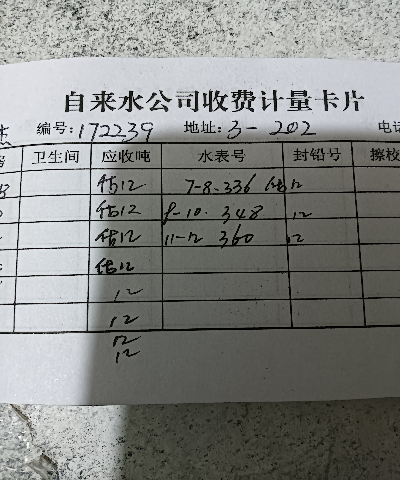 自来水公司收费计量卡片
编号: 172239 地址: 3-202 电话
卫生间 应收吨 水表号 封铅号 擦校
估12 7-8. 336 估12
估12 9-10. 348 12
估12 11-12 360 12
估12
12
12
12
12